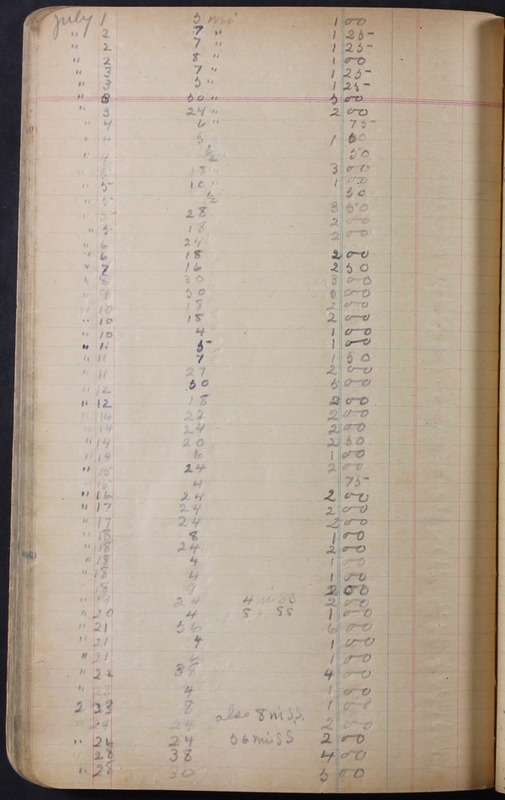 July 1 5 mi 1 00
" 2 7 " 1 25
" 2 7 " 1 25
" 2 8 " 1 00
" 3 7 " 1 25
" 3 5 " 1 25
" 3 50 " 5 00
" 3 24 " 2 00
" 4 6 " 75
" 5 1
" 1/2 50
" 18 " 3 00
" 5 10 " 1 00
" 5 1/2 50
28 3
" 5 18 2
" 6 24 2
" 6 18 2 00
" 7 16 2 50
" 8 30 3 00
" 9 50 5 00
" 10 18 2 00
" 10 18 2 00
" 10 4 1 00
" 11 5 1 00
" 11 7 1 50
" 11 27 2 00
" 12 50 5 00
" 12 18 2 00
" 14 22 2 00
" 14 24 2 00
" 14 20 2 50
" 14 6 1 00
" 15 24 2 00
" 4 75
" 16 24 2 00
" 17 24 2 00
" 17 24 2 00
" 18 8 1 00
" 18 24 2 00
" 18 4 1 00
" 18 4 1 00
" 9 2 00
" 24 4 miss 2 00
" 20 4 5 " 55 1 00
" 21 56 6 00
" 21 4 1 00
" 21 1 00
" 22 38 4 00
" 4 1 00
2 23 8 1 00
" 24 24 also 8 miss. 2 00
" 25 24 56 miss 2 00
" 28 38 4 00
" 28 30 3 00